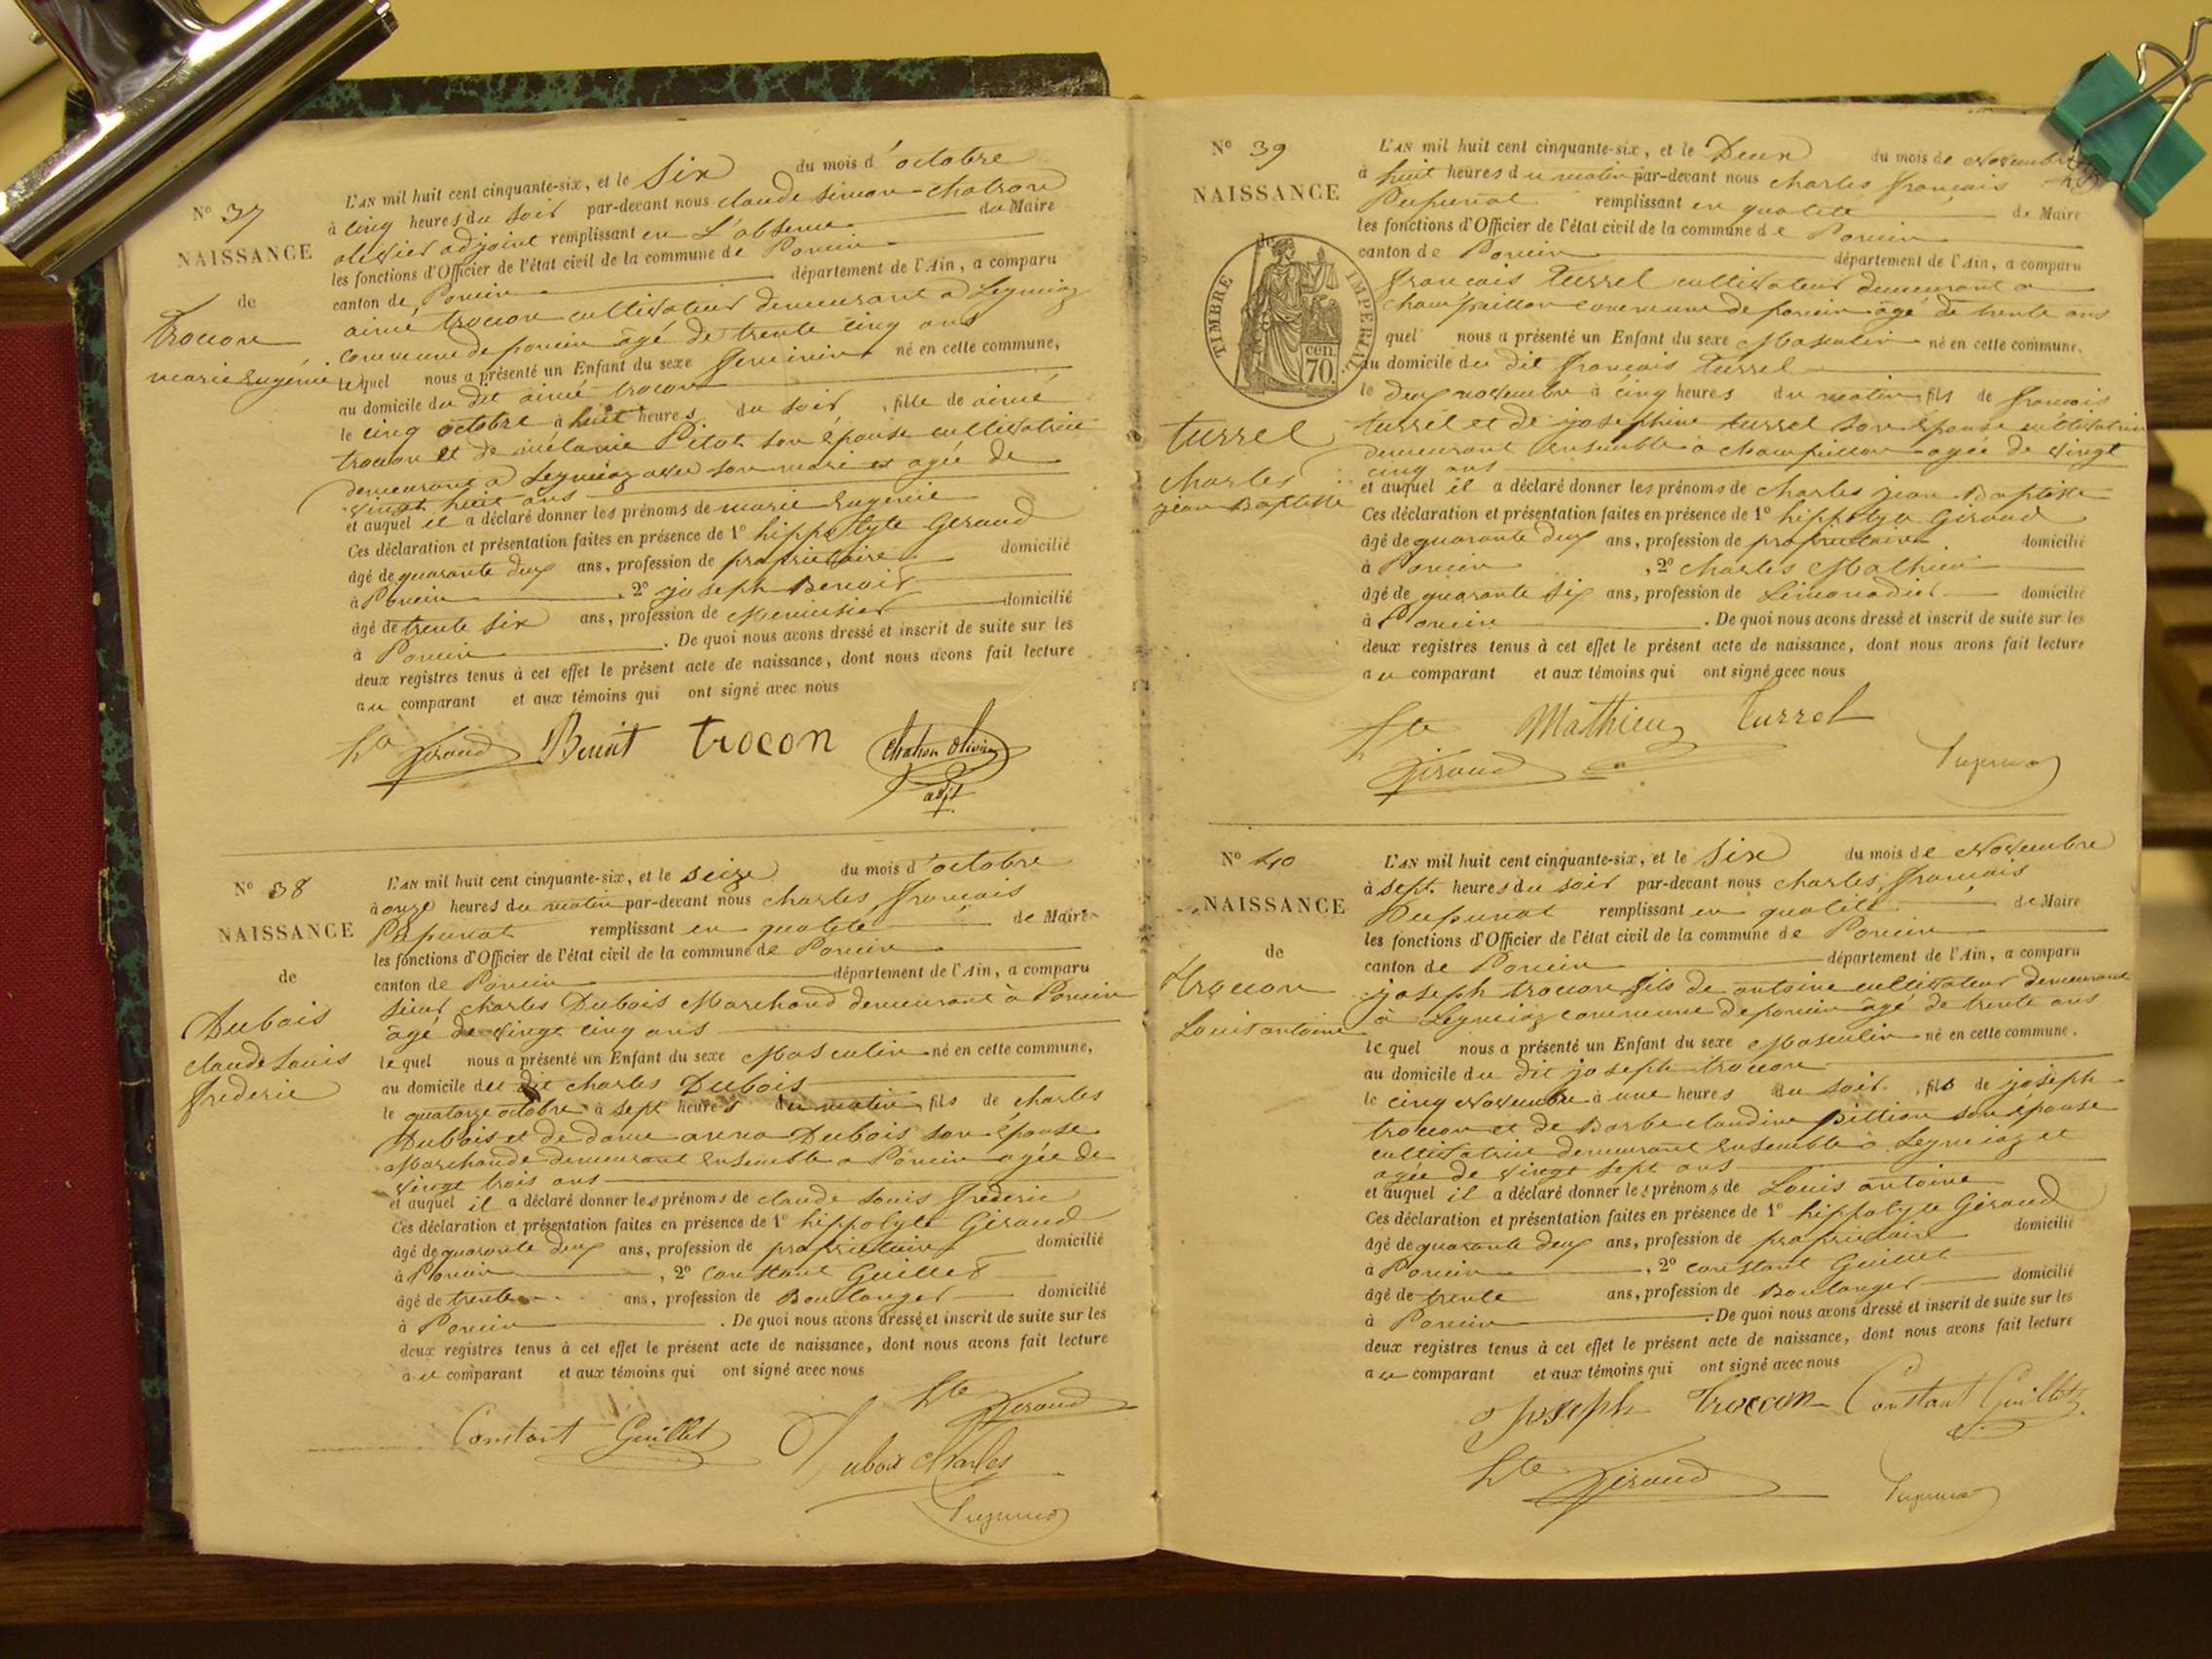 N° 37
NAISSANCE
de
trocon
marie Eugénie
L'AN mil huit cent cinquante-six, et le Six du mois d'octobre
à cinq heures du soir par-devant nous claude simon chatron
olivier adjoint remplissant en L'absence du Maire
les fonctions d'Officier de l'état civil de la commune de Poncin
canton de Poncin département de l'Ain, a comparu
aimé trocon cultivateur demeurant a Leymiaz
commune de poncin âgé de trente cinq ans
lequel nous a présenté un Enfant du sexe feminin né en cette commune,
au domicile du dit aimé trocon
le cinq octobre à huit heures du soir, fille de aimé
trocon et de mélanie Pitot son épouse cultivatrice
demeurant a Leymiaz avec son mari et agée de
vingt huit ans
et auquel il a déclaré donner les prénoms de marie Eugenie
Ces déclaration et présentation faites en présence de 1° hippolyte Giraud
âgé de quarante deux ans, profession de propriétaire domicilié
à Poncin, 2° joseph Benoit
âgé de trente six ans, profession de Menuisier domicilié
à Poncin. De quoi nous avons dressé et inscrit de suite sur les
deux registres tenus à cet effet le présent acte de naissance, dont nous avons fait lecture
au comparant et aux témoins qui ont signé avec nous
hte Giraud Benoit trocon Chatron Olivier
adjt
N° 38
NAISSANCE
de
Dubois
claude Louis
frederic
L'AN mil huit cent cinquante-six, et le seize du mois d'octobre
à onze heures du matin par-devant nous charles françois
Pupunat remplissant en qualité de Maire
les fonctions d'Officier de l'état civil de la commune de Poncin
canton de Poncin département de l'Ain, a comparu
sieur charles Dubois Marchand demeurant à Poncin
âgé de vingt cinq ans
lequel nous a présenté un Enfant du sexe Masculin né en cette commune,
au domicile du dit charles Dubois
le quatorze octobre à sept heures du matin fils de charles
Dubois et de dame anna Dubois son épouse
Marchande demeurant Ensemble a Poncin agée de
vingt trois ans
et auquel il a déclaré donner les prénoms de claude Louis frederic
Ces déclaration et présentation faites en présence de 1° hippolyte Giraud
âgé de quarante deux ans, profession de propriétaire domicilié
à Poncin, 2° constant Guillet
âgé de trente ans, profession de Boulanger domicilié
à Poncin. De quoi nous avons dressé et inscrit de suite sur les
deux registres tenus à cet effet le présent acte de naissance, dont nous avons fait lecture
au comparant et aux témoins qui ont signé avec nous
hte Giraud
Constant Guillet
Dubois Charles
Pupunat
N° 39
NAISSANCE
de
TIMBRE IMPERIAL
70 cen.
turrel
charles
jean Baptiste
L'AN mil huit cent cinquante-six, et le Deux du mois de Novembre
à huit heures du matin par-devant nous charles françois
Pupunat remplissant en qualité de Maire
les fonctions d'Officier de l'état civil de la commune de Poncin
canton de Poncin département de l'Ain, a comparu
françois turrel cultivateur demeurant a
commune de poncin âgé de trente ans
quel nous a présenté un Enfant du sexe Masculin né en cette commune,
au domicile du dit françois turrel
le deux novembre à cinq heures du matin fils de françois
turrel et de josephine turrel son épouse cultivatrice
demeurant Ensemble à agée de vingt
cinq ans
et auquel il a déclaré donner les prénoms de charles jean Baptiste
Ces déclaration et présentation faites en présence de 1° hippolyte Giraud
âgé de quarante deux ans, profession de propriétaire domicilié
à Poncin, 2° charles Mathieu
âgé de quarante six ans, profession de Limonadier domicilié
à Poncin. De quoi nous avons dressé et inscrit de suite sur les
deux registres tenus à cet effet le présent acte de naissance, dont nous avons fait lecture
au comparant et aux témoins qui ont signé avec nous
hte Mathieu turrel
Giraud Pupunat
N° 40
NAISSANCE
de
trocon
Louis antoine
L'AN mil huit cent cinquante-six, et le Six du mois de Novembre
à sept heures du soir par-devant nous charles françois
Pupunat remplissant en qualité de Maire
les fonctions d'Officier de l'état civil de la commune de Poncin
canton de Poncin département de l'Ain, a comparu
joseph trocon fils de antoine cultivateur demeurant
à Leymiaz commune de poncin âgé de trente ans
lequel nous a présenté un Enfant du sexe Masculin né en cette commune,
au domicile du dit joseph trocon
le cinq Novembre à une heures du soir, fils de joseph
trocon et de Barbe claudine pittion son épouse
cultivatrice demeurant Ensemble à Leymiaz et
agée de vingt sept ans
et auquel il a déclaré donner les prénoms de Louis antoine
Ces déclaration et présentation faites en présence de 1° hippolyte Giraud
âgé de quarante deux ans, profession de propriétaire domicilié
à Poncin, 2° constant Guillet
âgé de trente ans, profession de Boulanger domicilié
à Poncin. De quoi nous avons dressé et inscrit de suite sur les
deux registres tenus à cet effet le présent acte de naissance, dont nous avons fait lecture
au comparant et aux témoins qui ont signé avec nous
Joseph Troccon Constant Guillet
hte Giraud Pupunat